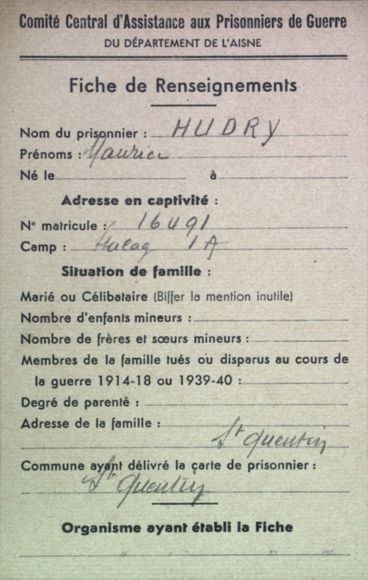 Comité Central d'Assistance aux Prisonniers de Guerre
DU DÉPARTEMENT DE L'AISNE
Fiche de Renseignements
Nom du prisonnier : HUDRY
Prénoms : Maurice
Né le à
Adresse en captivité :
N° matricule : 16491
Camp : Stalag 1A
Situation de famille :
Marié ou Célibataire (Biffer la mention inutile)
Nombre d'enfants mineurs :
Nombre de frères et sœurs mineurs :
Membres de la famille tués ou disparus au cours de
la guerre 1914-18 ou 1939-40 :
Degré de parenté :
Adresse de la famille :
St Quentin
Commune ayant délivré la carte de prisonnier :
St Quentin
Organisme ayant établi la Fiche